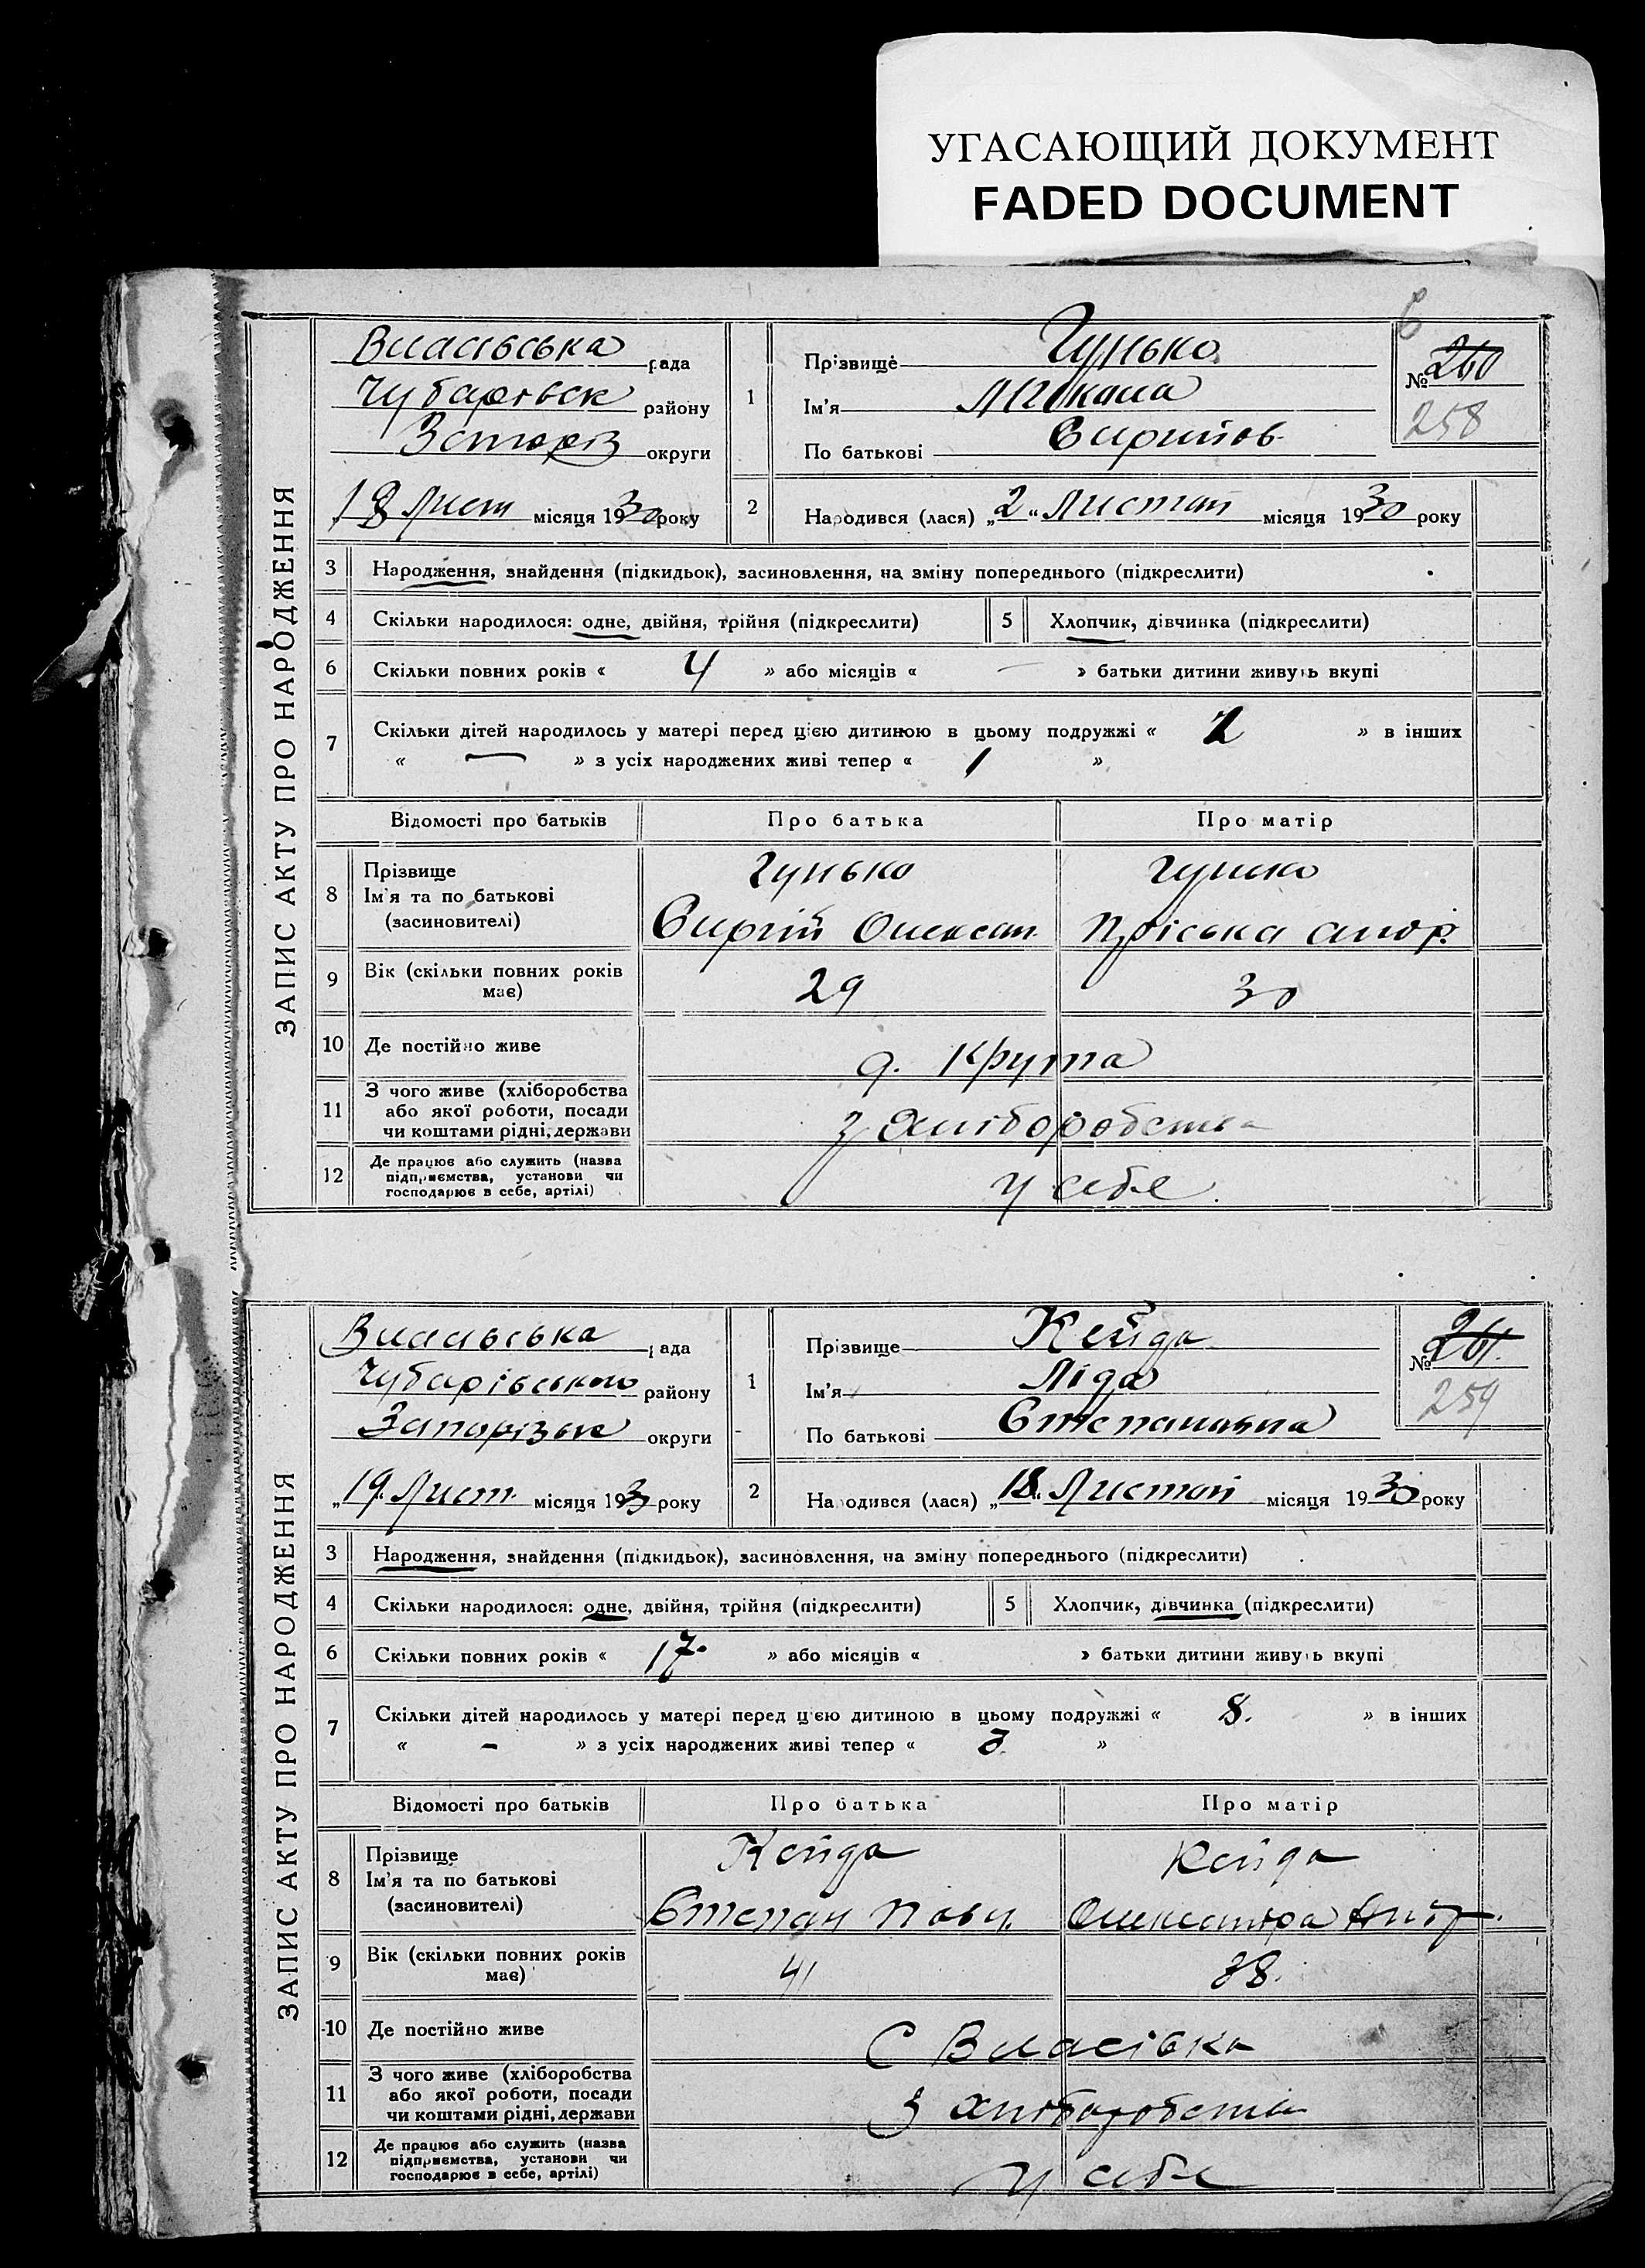 УГАСАЮЩИЙ ДОКУМЕНТ
FADED DOCUMENT
6
ЗАПИС АКТУ ПРО НАРОДЖЕННЯ
Власівська рада
Чубарівськ району
округи
18 Лист місяця 1930 року
1 Прізвище Гунько
Ім'я
По батькові
№ 260
258
2 Народився (лася) „2“ Листоп місяця 1930 року
3 Народження, знайдення (підкидьок), засиновлення, на зміну попереднього (підкреслити)
4 Скільки народилося: одне, двійня, трійня (підкреслити) 5 Хлопчик, дівчинка (підкреслити)
6 Скільки повних років « 4 » або місяців « — » батьки дитини живуть вкупі
7 Скільки дітей народилось у матері перед цією дитиною в цьому подружжі « 2 » в інших
« — » з усіх народжених живі тепер « 1 »
Відомості про батьків Про батька Про матір
8 Прізвище Гунько Гунько
Ім'я та по батькові
(засновителі) Сиргій Олексан Пріська
9 Вік (скільки повних років 29 30
має)
10 Де постійно живе д. Крута
11 З чого живе (хліборобства
або якої роботи, посади з хліборобства
чи коштами рідні, держави
12 Де працює або служить (назва
підприємства, установи чи у себе
господарює в себе, артілі)
ЗАПИС АКТУ ПРО НАРОДЖЕННЯ
Власівська рада
Чубарівського району
Запорізьк округи
„19 Лист. місяця 1930 року
1 Прізвище Кейда
Ім'я Ліда
По батькові Степановна
№ 261.
259
2 Народився (лася) „18“ Листоп місяця 1930 року
3 Народження, знайдення (підкидьок), засиновлення, на зміну попереднього (підкреслити)
4 Скільки народилося: одне, двійня, трійня (підкреслити) 5 Хлопчик, дівчинка (підкреслити)
6 Скільки повних років « 17 » або місяців « » батьки дитини живуть вкупі
7 Скільки дітей народилось у матері перед цією дитиною в цьому подружжі « 8. » в інших
« - » з усіх народжених живі тепер « 3 »
Відомості про батьків Про батька Про матір
8 Прізвище Кейда Кейда
Ім'я та по батькові
(засиновителі) Степан Павл. Олександра
9 Вік (скільки повних років 41 38.
має)
10 Де постійно живе С Власівка
11 З чого живе (хліборобства
або якої роботи, посади З хліборобства
чи коштами рідні, держави
12 Де працює або служить (назва
підприємства, установи чи у себе
господарює в себе, артілі)